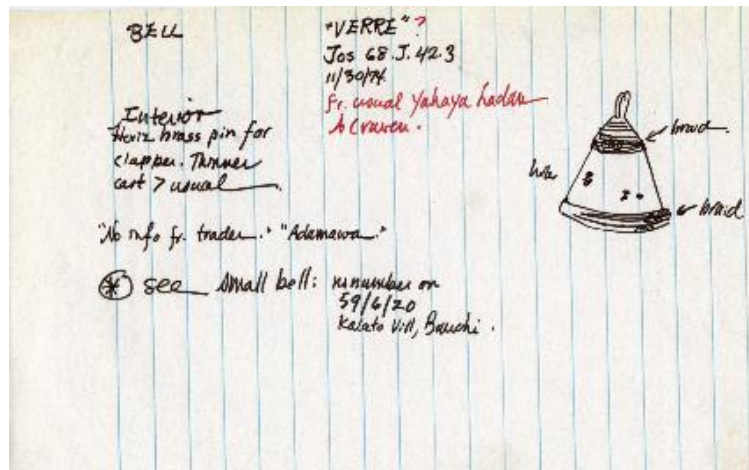 BELL
"VERRE"?
Jos 68.J.42.3
11/30/74
fr. usual Yahaya
A Craven.
Interior
Horiz brass pin for
clapper. Thinner
cast > usual
braid
braid
"No info fr. trader." "Adamawa."
* see small bell: number on
59/6/20
Vill, Bauchi.